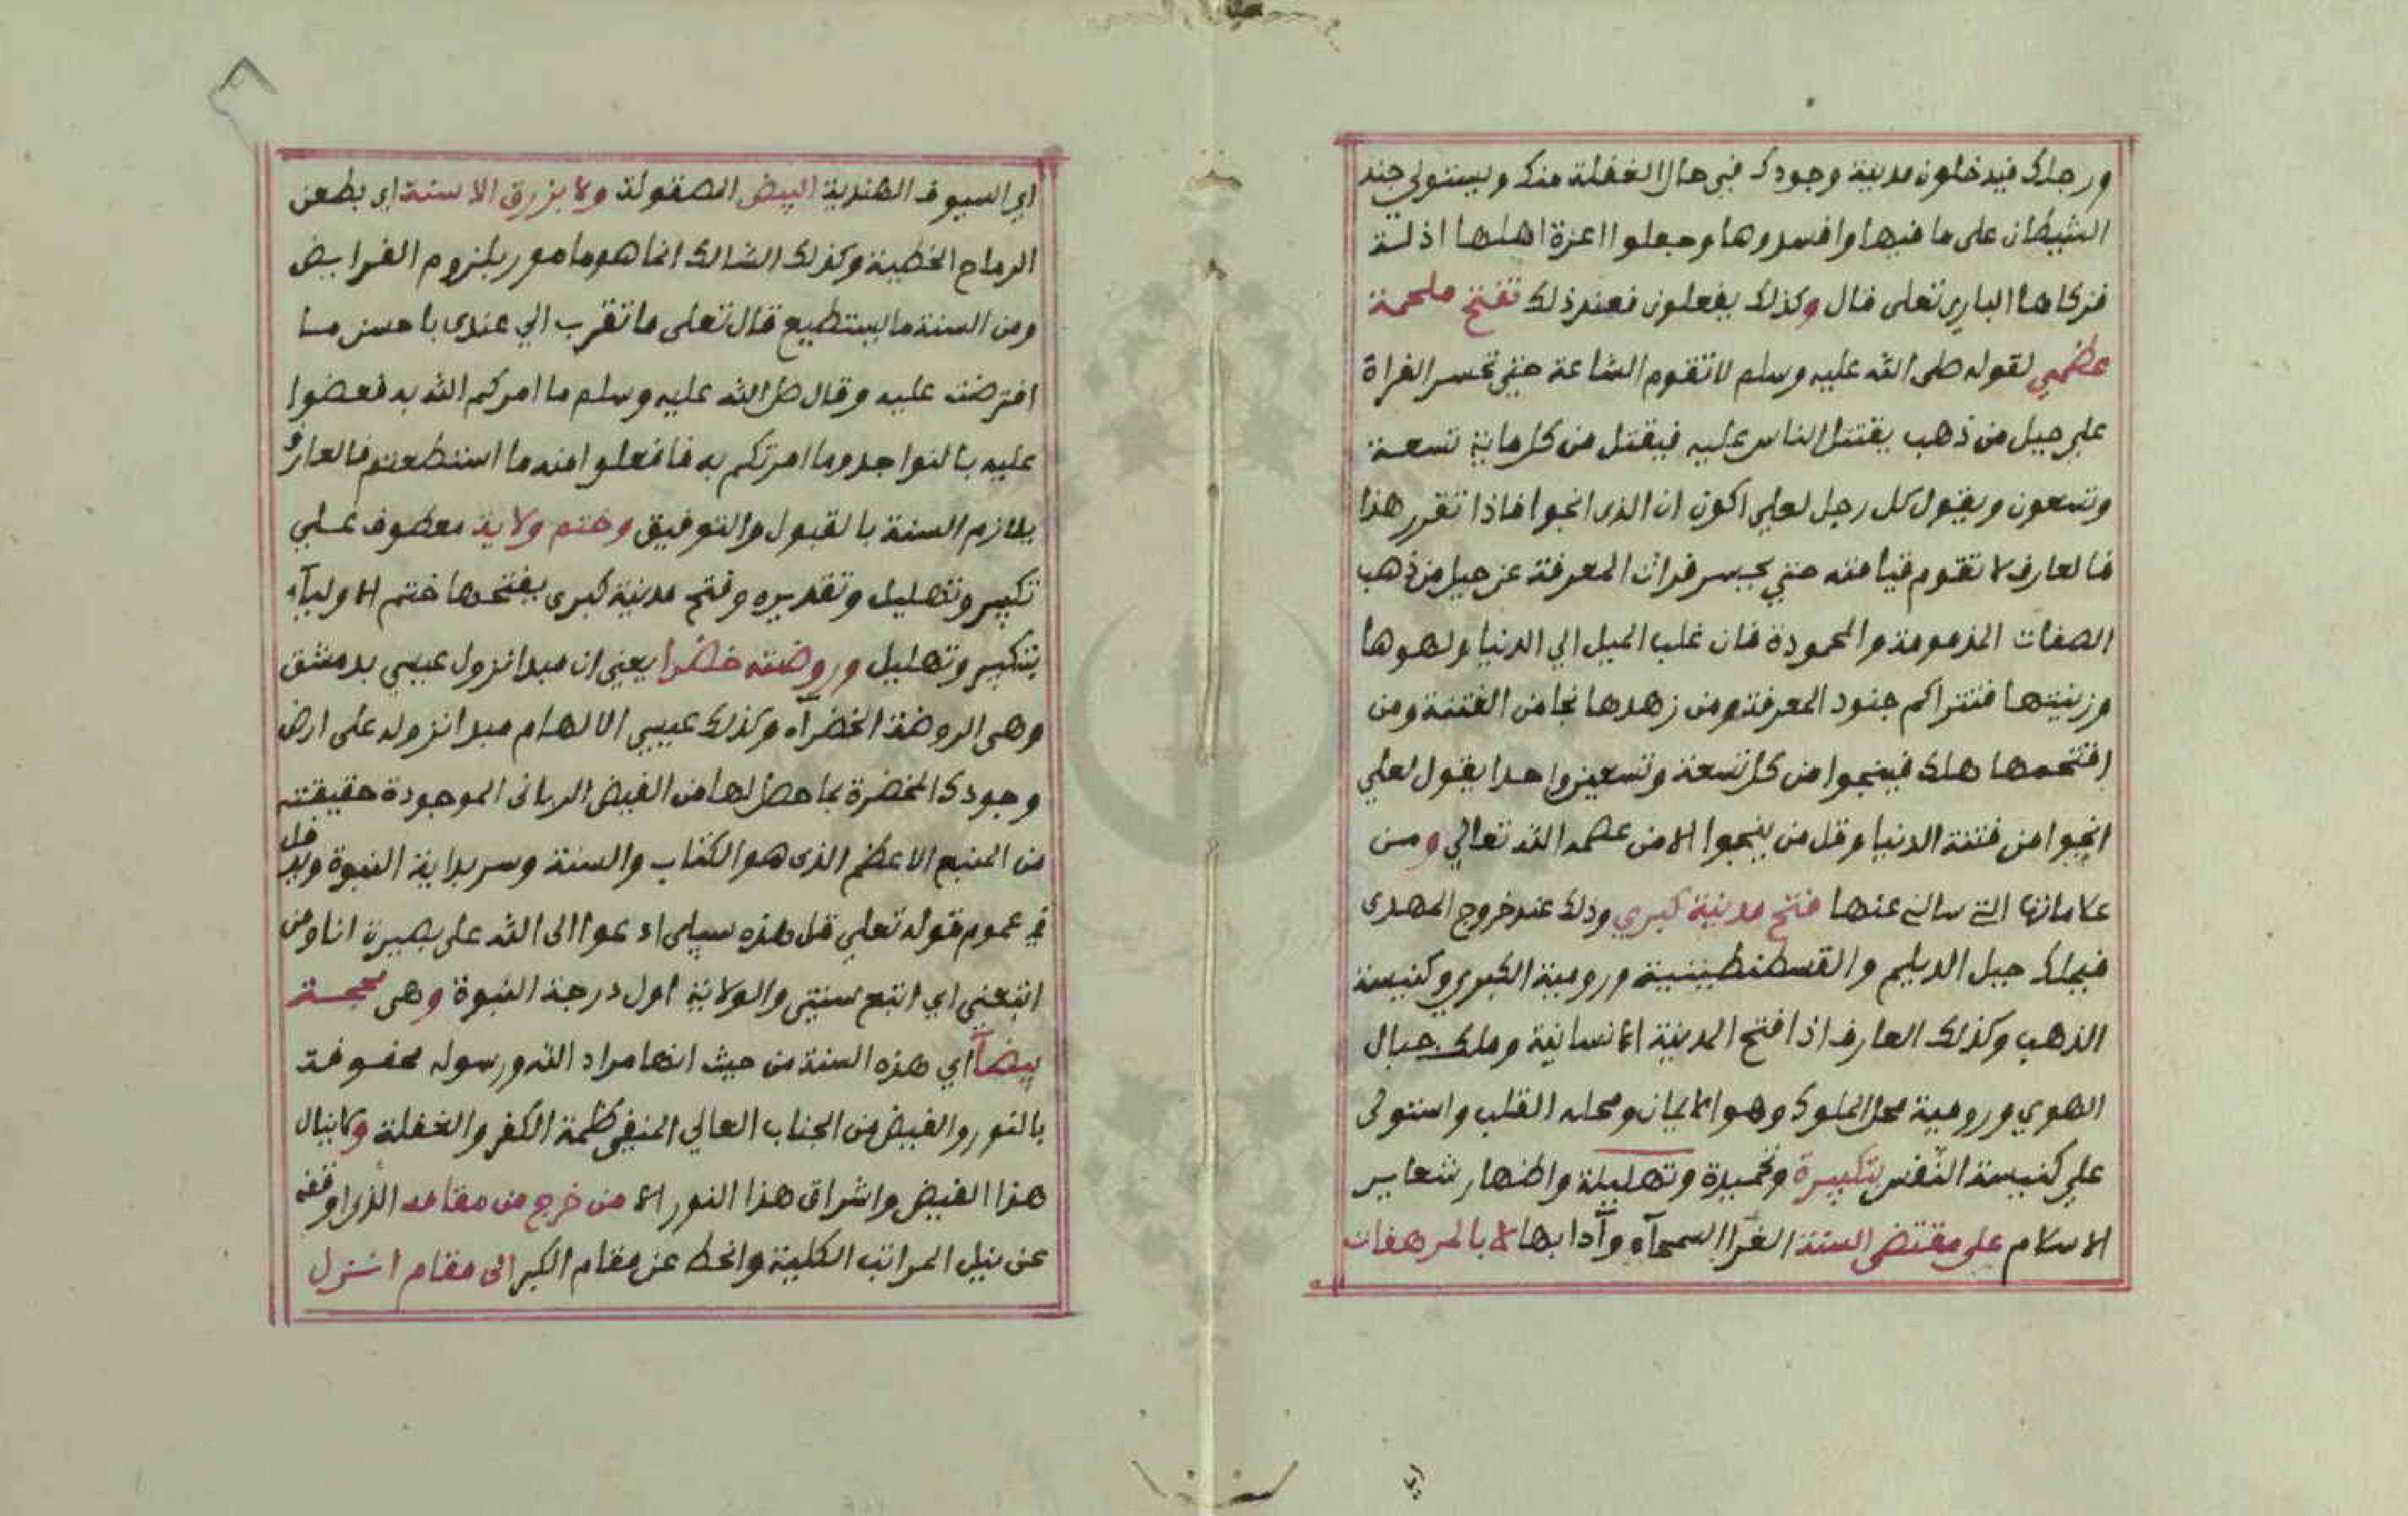 ورجلك فيدخلون مدينة وجودك في حال الغفلة منك ويستولي جند
الشيطان على ما فيها وافسدوها وجعلوا اعزة اهلها اذلة
فزكاها الباري تعلى قال وكذلك يفعلون فعند ذلك تفتح ملحمة
عظمي لقوله صلى الله عليه وسلم لا تقوم الساعة حتي تحسر الفراة
علي جبل من ذهب يقتتل الناس عليه فيقتل من كل ماية تسعة
وتسعون ويقول كل رجل لعلي اكون ان الذى انجوا فاذا تقرر هذا
فالعارف لا تقوم قيامته حتي يحسر فرات المعرفة عن جبل من ذهب
الصفات المذمومة والمحمودة فان غلب الميل الي الدنيا ولهوها
وزينتها فتتراكم جنود المعرفة ومن زهدها نجا من الفتنة ومن
افتحمها هلك فينجوا من كل تسعة وتسعين واحدا يقول لعلي
انجوا من فتنة الدنيا وقل من ينجوا الا من عصمه الله تعالي ومن
علاماتها التي سالني عنها فتح مدينة كبري وذلك عند خروج المهدى
فيملك جبل الديلم والقسطنطينية ورومية الكبري وكنيسة
الذهب وكذلك العارف اذا فتح المدينة الانسانية وملك جبال
الهوي ورومية محل الملوك وهو الايمان ومحله القلب واستولى
علي كنيسة النفس بتكبيرة وتحميدة وتهليلة واظهار شعاير
الاسلام على مقتضى السنة الغرا السمحآء وآدابها لا بالمرهفات
اي السيوف الهندية البيض الصقولة ولا بزرق الاسنة اي بطعن
الرماح الخطية وكذلك السالك انما هو مامور بلزوم الفرايض
ومن السنة ما يستطيع قال تعلى ما تقرب الي عبدى باحسن ما
افترضت عليه وقال صلى الله عليه وسلم ما امركم الله به فعضوا
عليه بالنواجد وما امرتكم به فافعلوا منه ما استطعتم فالعارف
يلازم السنة بالقبول والتوفيق وختم ولاية معطوف علي
تكبير وتهليل وتقديره وفتح مدينة كبرى يفتحها ختم الاوليآء
بتكبير وتهليل وروضته خضرا يعني ان مبدا نزول عيسي بدمشق
وهى الروضة الخضرآء وكذلك عيسي الالهام مبدا نزوله على ارض
وجودك المخضرة بما حصل لها من الفيض الربانى الموجودة حقيقته
من المنبع الاعظم الذى هو الكتاب والسنة وسر بداية النبوة ويدخل
في عموم قوله تعلي قل هذه سبيلى ادعوا الى الله على بصيرة انا ومن
اتبعني اي اتبع سنتي والولاية اول درجة النبوة وهى محجة
بيضآ اي هذه السنة من حيث انها مراد الله ورسوله محفوفة
بالنور والفيض من الجناب العالي المنفي ظلمة الكفر والغفلة ولا ينال
هذا الفيض واشراق هذا النور الا من خرج من مقامه الذى اوقفه
عن نيل المراتب الكلية وانحط عن مقام الكبر الى مقام انزل